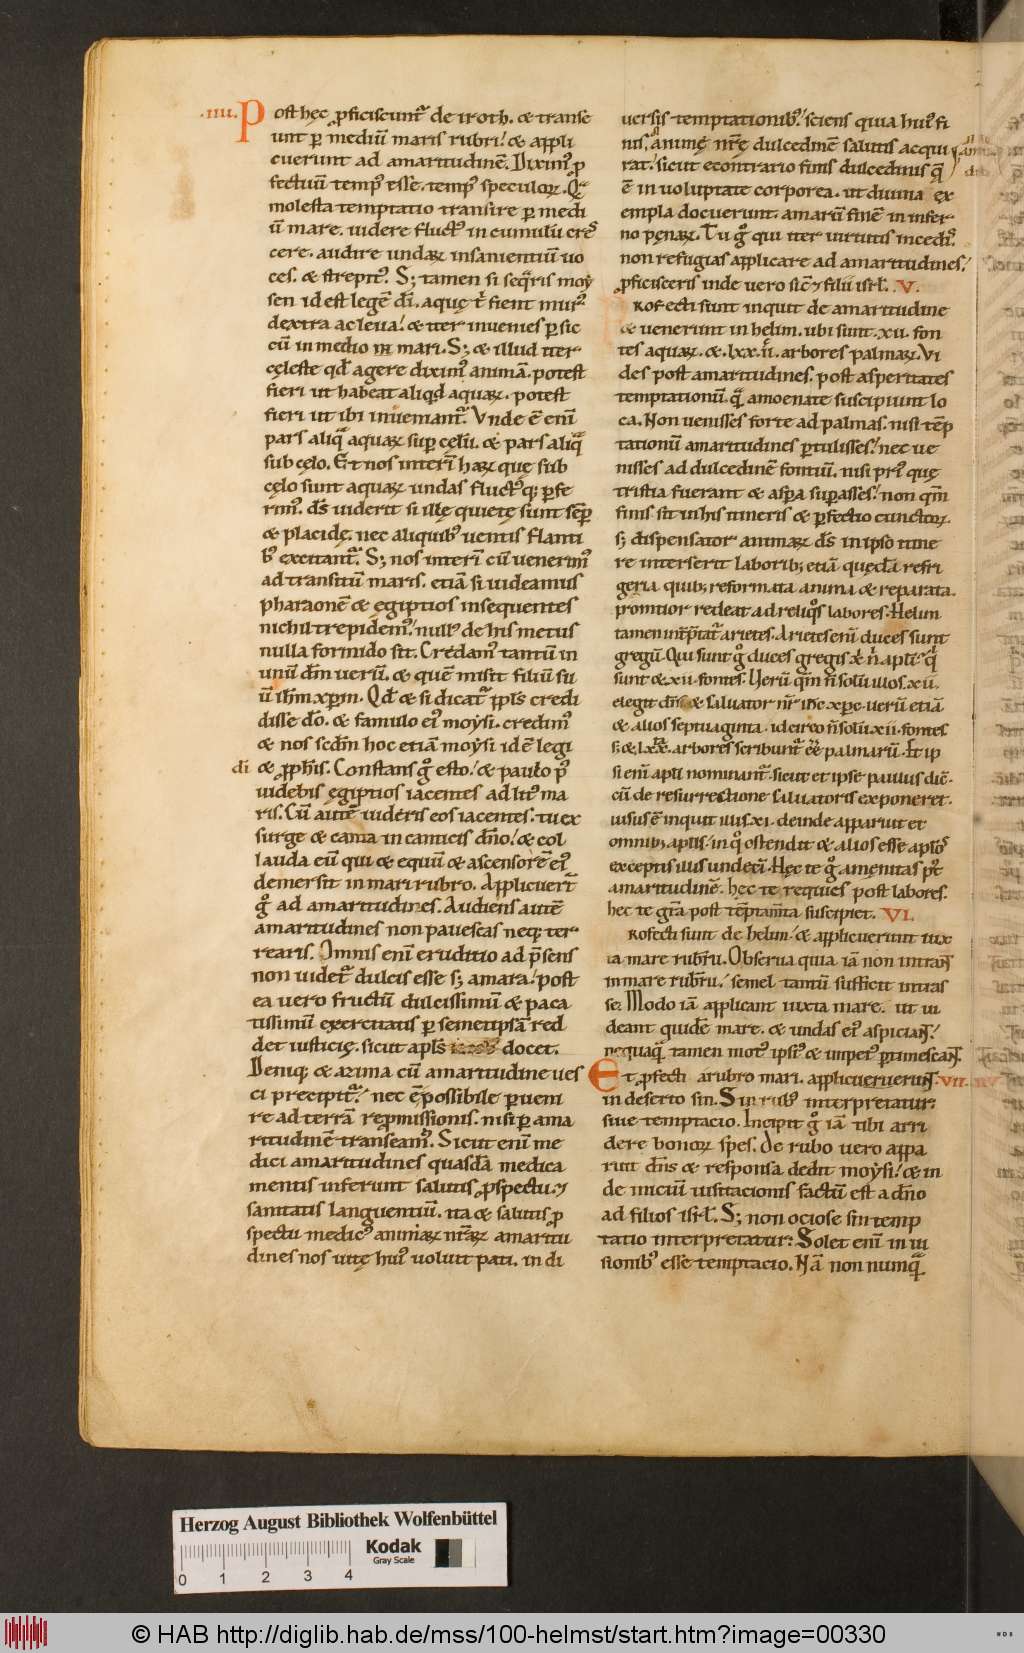 .IIII. Post hęc ꝓficiscunt᷑ de iroth. & transe
unt ꝑ mediū maris rubri. & appli
cuerunt ad amaritudinē. Diximꝰ ꝓ
fectuū tempꝰ esse. tempꝰ speculoꝝ. Quę
molesta temptatio transire ꝑ medi
ū mare. uidere fluctꝰ in cumulū cres
cere. audire undaꝝ insanientiū uo
ces. & strepitꝰ. S; tamen si seq̄ris moy
sen id est legē dī. aquę t̄ fient murꝰ
dextra ac leua. & iter inuenies ꝑ sic
cū in medio in mari. S; & illud iter
cęleste qd̄ agere diximꝰ animā. potest
fieri ut habeat aliqd aquaꝝ. potest
fieri ut ibi inueniant᷑. Vnde ē eni
pars aliq̄ aquaꝝ suꝑ cęlū. & pars aliq̄
sub cęlo. Et nos interī haꝝ quę sub
cęlo sunt aquaꝝ undas fluctꝰq; ꝑfe
rimꝰ. ds̄ uiderit si illę quietę sunt semꝑ
& placidę. nec aliquibꝰ uentis flanti
bꝰ excitant᷑. S; nos interī cū uenerimꝰ
ad transitū maris. etiā si uideamus
pharaonē & egiptios insequentes
nichil trepidemꝰ. nullꝰ de his metus
nulla formido sit. Credamꝰ tantū in
unū dm̄ uerū. & quē misit filiū su
ū ihm̄ xpm̄. Qd̄ & si dicat᷑ ip̄ls credi
disse dō. & famulo eiꝰ moysi. credimꝰ
& nos scdm̄ hoc etiā moysi id ē legi
dī & ꝓph̄is. Constans g̊ esto. & paulo pꝰ
uidebis ęgiptios iacentes ad litꝰ ma
ris. Cū autē uideris eos iacentes. tu ex
surge & canta in canticis dn̄o. & col
lauda eū qui & equū & ascensorē eiꝰ
demersit in mari rubro. Applicuer̄t
g̊ ad amaritudines. Audiens autē
amaritudines non pauescas neq; ter
rearis. Omnis eni eruditio ad p̄sens
non uidet᷑ dulcis esse s; amara. post
ea uero fructū dulcissimū & paca
tissimū exercitatis ꝑ semetipsā red
det iusticię. sicut apl̄s docet.
Deniq; & azima cū amaritudine ues
ci precipit᷑. nec ē possibile ꝑueni
re ad terrā reꝓmissionis. nisi ꝑ ama
ritudinē transeamꝰ. Sicut eni me
dici amaritudines quasdā medica
mentis inferunt salutis ꝓspectu. ⁊
sanitatis languentiū. ita & salutis ꝓ
spectu medicꝰ animaꝝ nr̄aꝝ amaritu
dines nos uitę huiꝰ uoluit pati. in di
uersis temptationibꝰ. sciens quia huiꝰ fi
nis, animę nr̄ę dulcedinē salutis acqui
rat. sicut econtrario finis dulcedinis quę
ē in uoluptate corporea. ut diuina ex
empla docuerunt. amarū finē in infer
no pęnaꝝ. Tu g̊ qui iter uirtutis incedis.
non refugias applicare ad amaritudines.
ꝓficisceris inde uero sic ⁊ filii isrl̄. V.
Rofecti sunt inquit de amaritudine
& uenerunt in helim. ubi sunt .xii. fon
tes aquaꝝ. & .lxx.ii. arbores palmaꝝ. Vi
des post amaritudines. post asperitates
temptationū. q̄ amoenate suscipiunt lo
ca. Non uenisses forte ad palmas. nisi tēp
tationū amaritudines ꝑtulisses. nec ue
nisses ad dulcedinē fontiū. nisi priꝰ quę
tristia fuerant & asꝑa suꝑasses. non qm̄
finis sit in his itineris & ꝑfectio cunctoꝝ.
s; dispensator animaꝝ ds̄ in ipso itine
re interserit laborib; etiā quędā refri
geria quib; reformata anima & reparata
promtior redeat ad reliqꝰs labores. Helim
tamen intp̄tat᷑ arietes. Arietes eni duces sunt
gregū. Qui sunt g̊ duces gregis xp̄i n̄ apl̄i. qi
sunt & xii. fontes. Verū qm̄ n̄ solū illos .xii.
elegit dn̄s & saluator nr̄ ihc xpc. uerū etiā
& alios septuaginta. idcirco n̄ solū .xii. fontes
s; & .lxx. arbores scribunt᷑ ee palmarū. Et ip
si eni apl̄i nominant᷑. sicut et ipse paulus dic̄.
cū de resurrectione saluatoris exponeret.
uisus ē inquit illis .xi. deinde apparuit et
omnib; aplis. in q̊ ostendit & alios esse aplos
exceptis illis undecī. Hęc te g̊ amęnitas pꝰt
amaritudinē. hęc te requies post labores.
hec te gr̄a post tēptam̄ta suscipiet. VI.
Rofecti sunt de helim. & applicuerunt iux
ta mare rubr̄u. Obserua quia iā non intrant
in mare rubr̄u. semel tantū sufficit intras
se. Modo iā applicant iuxta mare. ut ui
deant quidē mare. & undas eiꝰ aspiciant.
nequaq̄ tamen motꝰ ipsiꝰ & impetꝰ ꝑtimescant.
Et ꝓfecti a rubro mari. applicuerunt. VII.
in deserto sin. Sin rubꝰ interpretatur.
siue temptacio. Incipit g̊ iā tibi arri
dere bonoꝝ spes. De rubo uero appa
ruit dn̄s & responsa dedit moysi. & in
de iniciū uisitacionis factū est a dn̄o
ad filios isrl̄. S; non ociose sin temp
tatio interpretatur. Solet eni in ui
sionibꝰ esse temptacio. Nā non numq̄
Herzog August Bibliothek Wolfenbüttel
Kodak
Gray Scale
0 1 2 3 4
© HAB http://diglib.hab.de/mss/100-helmst/start.htm?image=00330